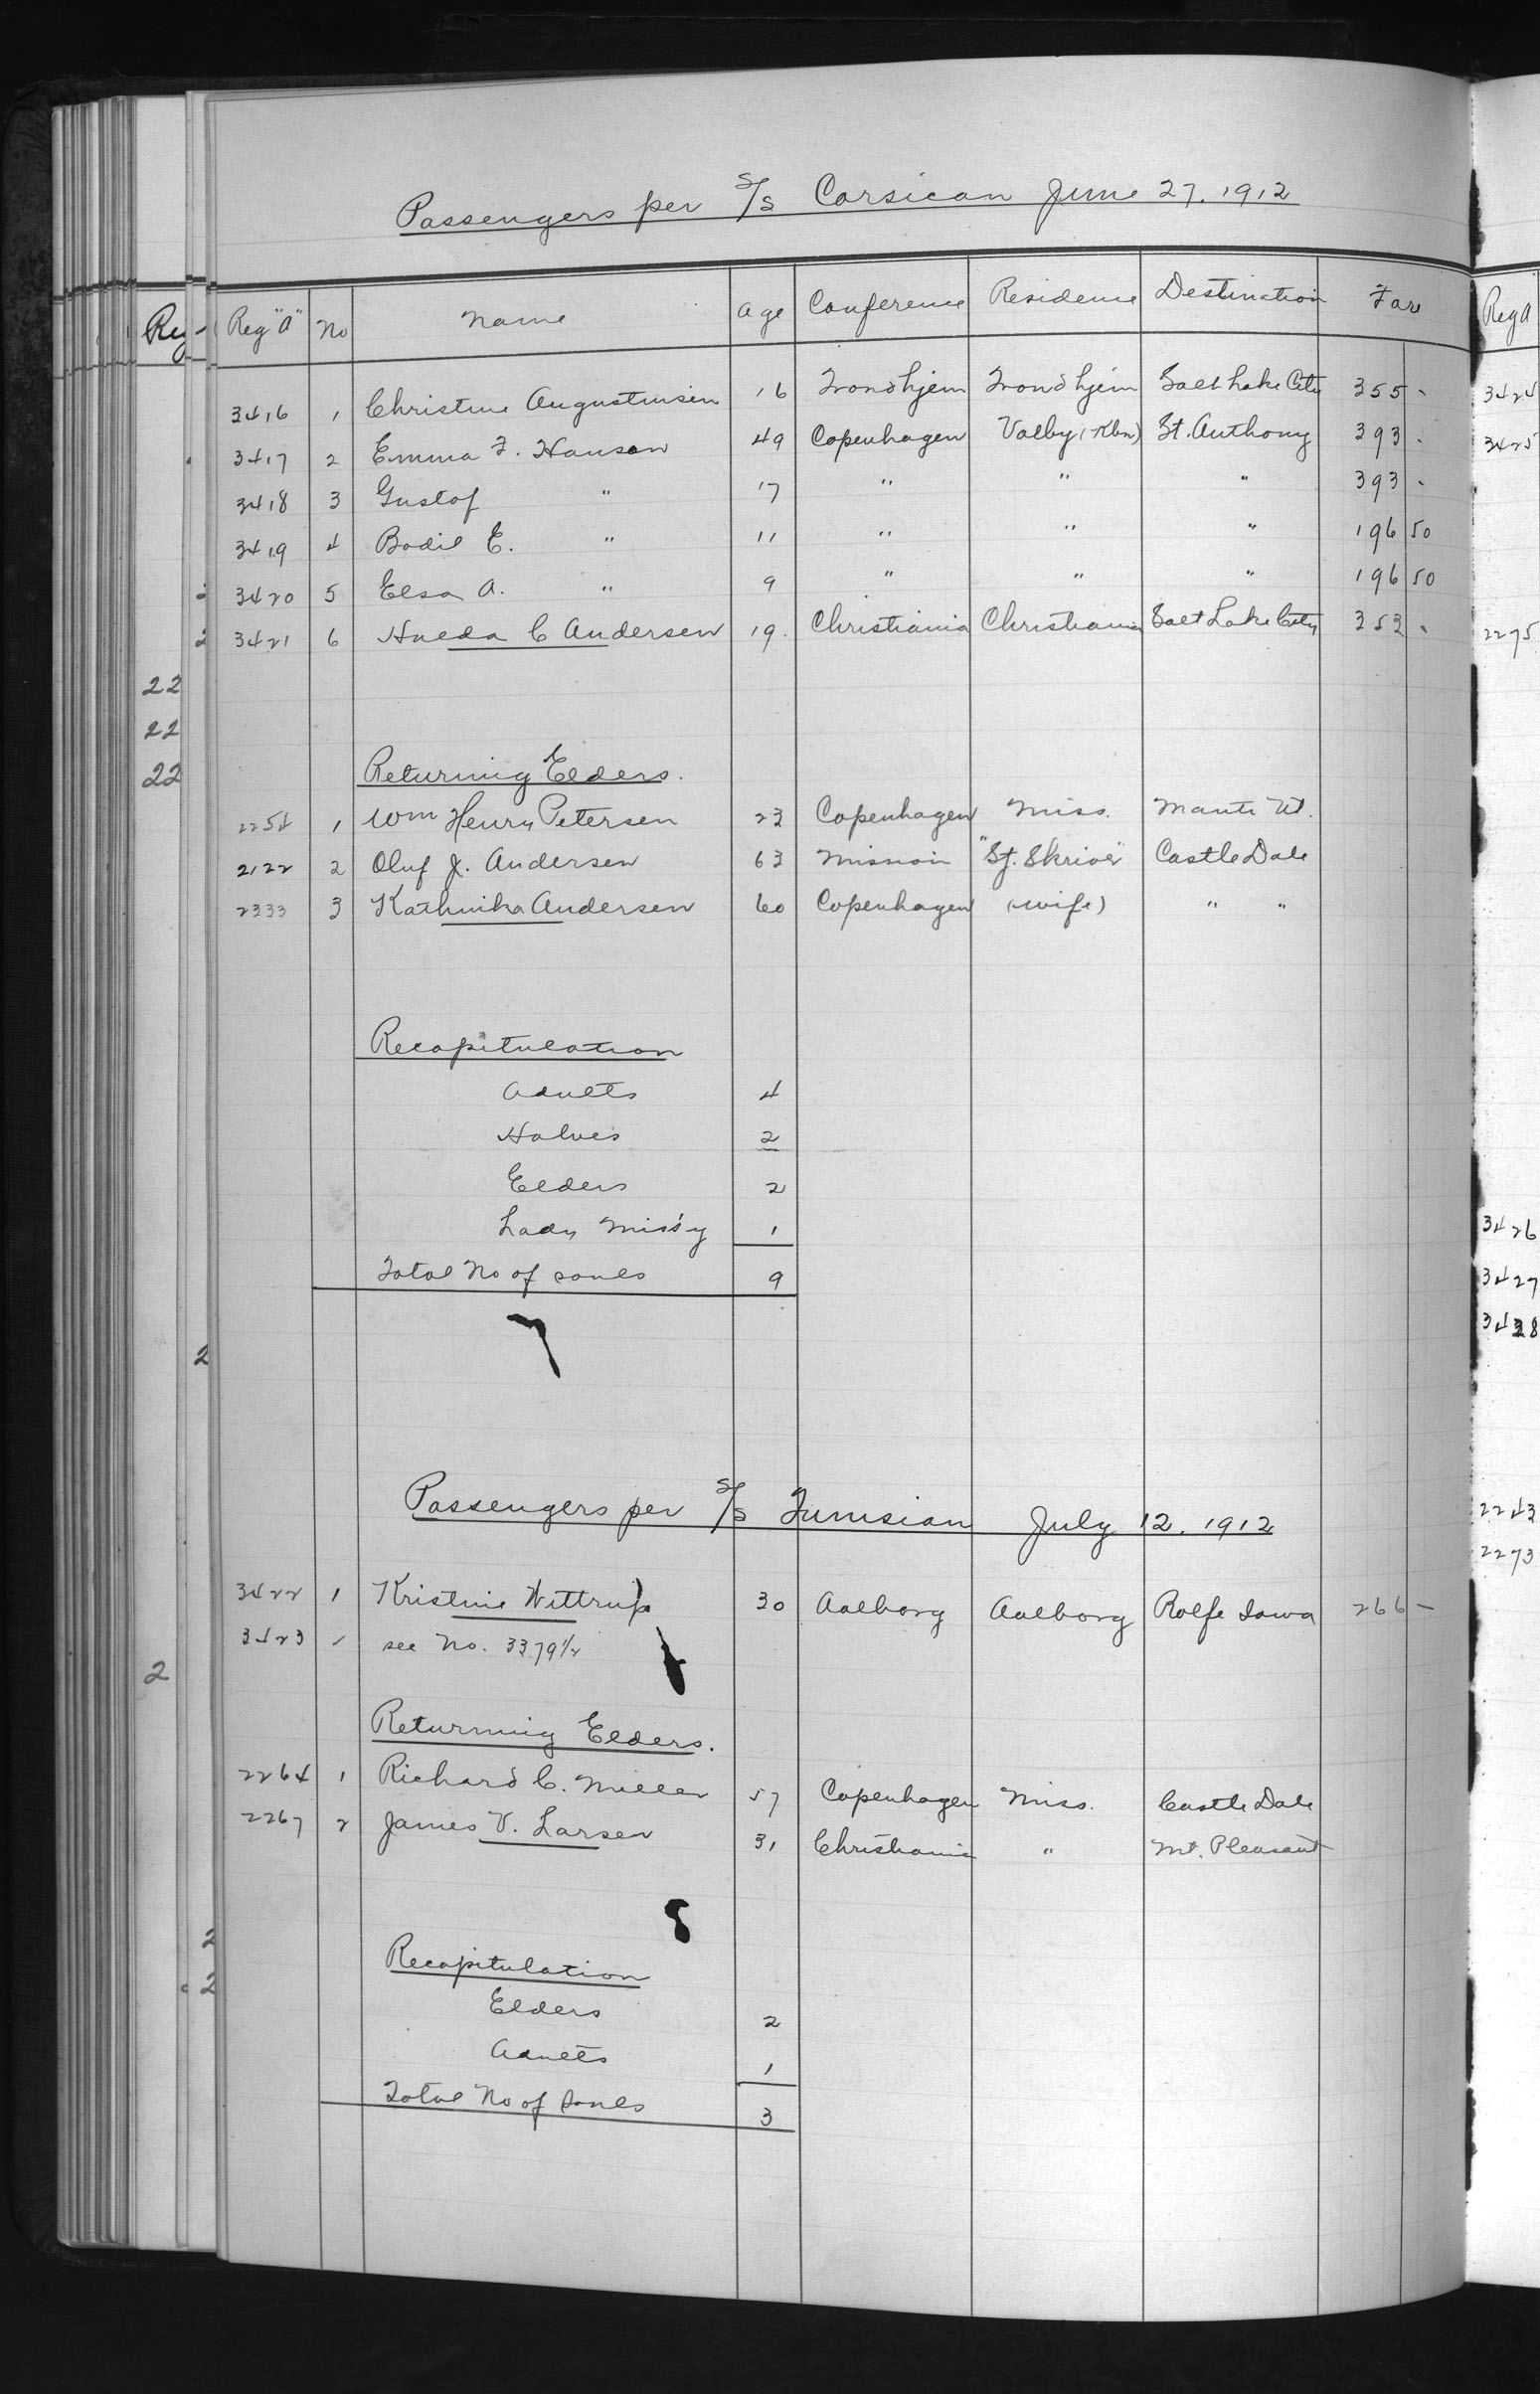 Passengers per S/S Corsican June 27. 1912
Reg "A" No Name Age Conference Residence Destination Fare
3416 1 Christine Augustinsen 16 Trondhjem Trondhjem Salt Lake City 355 -
3417 2 Emma F. Hansen 49 Copenhagen Valby (Kbn) St. Anthony 393 -
3418 3 Gustof " 17 " " " 393 -
3419 4 Bodil E. " 11 " " " 196 50
3420 5 Elsa A. " 9 " " " 196 50
3421 6 Hulda C Andersen 19. Christiania Christiania Salt Lake City 353 -
Returning Elders.
2254 1 Wm Henry Petersen 23 Copenhagen Miss. Manti Ut.
2122 2 Oluf J. Andersen 63 Mission "Sj. Skriver" Castle Dale
2333 3 Kathinka Andersen 60 Copenhagen (wife) " "
Recapitulation
Adults 4
Halves 2
Elders 2
Lady Miss'y 1
Total No of souls 9
7
Passengers per S/S Tunisian July 12. 1912
3422 1 Kristine Wittrup 30 Aalborg Aalborg Rolfe Iowa 266 -
3423 - see No. 3379½
Returning Elders.
2264 1 Richard C. Miller 57 Copenhagen Miss. Castle Dale
2267 2 James V. Larsen 31 Christiania " Mt. Pleasant
8
Recapitulation
Elders 2
Adults 1
Total No of souls 3
Reg
22
22
22
2
2
2
2
Reg A
3424
3425
2275
3426
3427
3428
2243
2273